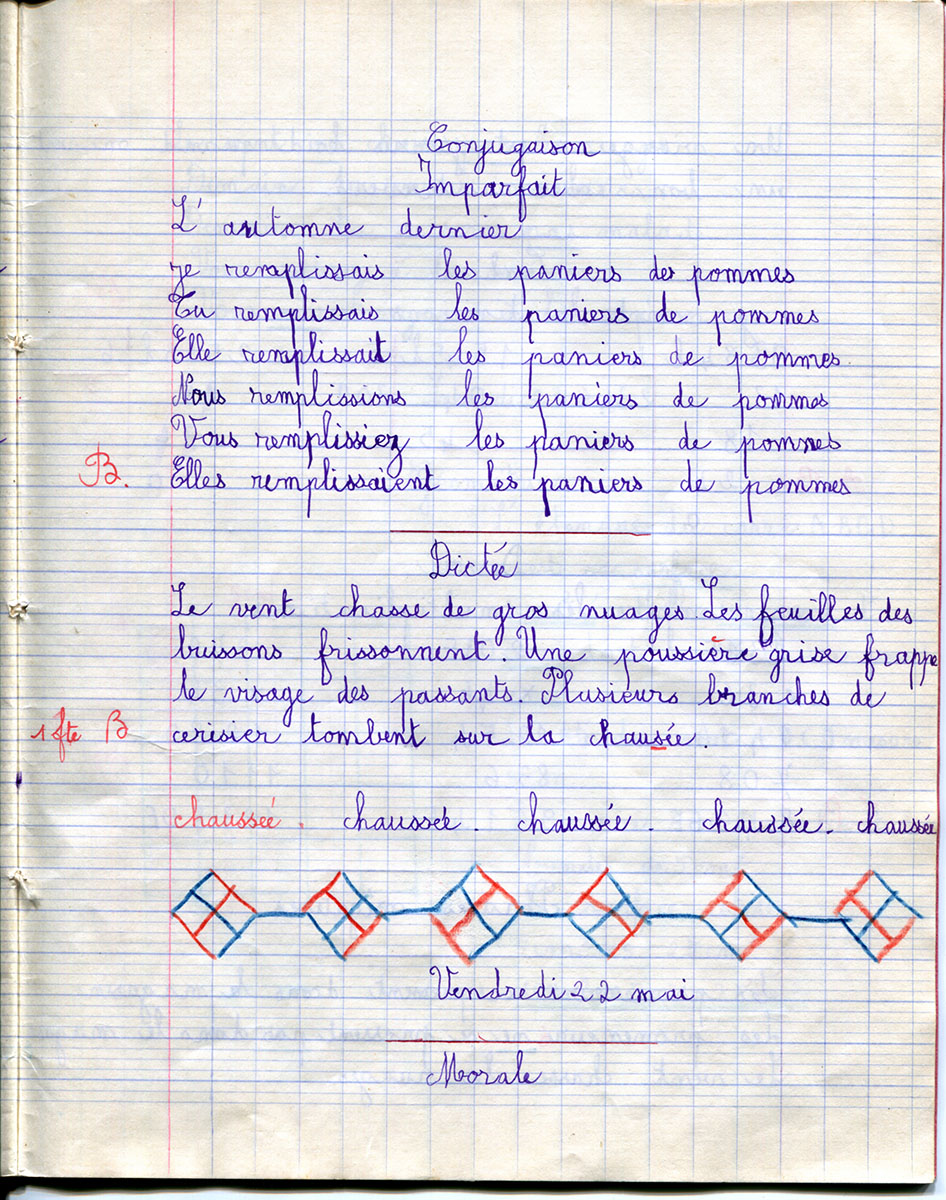 Conjugaison
Imparfait
L'automne dernier
je remplissais les paniers de pommes
Tu remplissais les paniers de pommes
Elle remplissait les paniers de pommes.
Nous remplissions les paniers de pommes
Vous remplissiez les paniers de pommes
B. Elles remplissaient les paniers de pommes
Dictée
Le vent chasse de gros nuages. Les feuilles des
buissons frissonnent. Une poussière grise frappe
le visage des passants. Plusieurs branches de
1 fte B cerisier tombent sur la chausée.
chaussée. chaussée. chaussée. chaussée. chaussée
Vendredi 22 mai
Morale